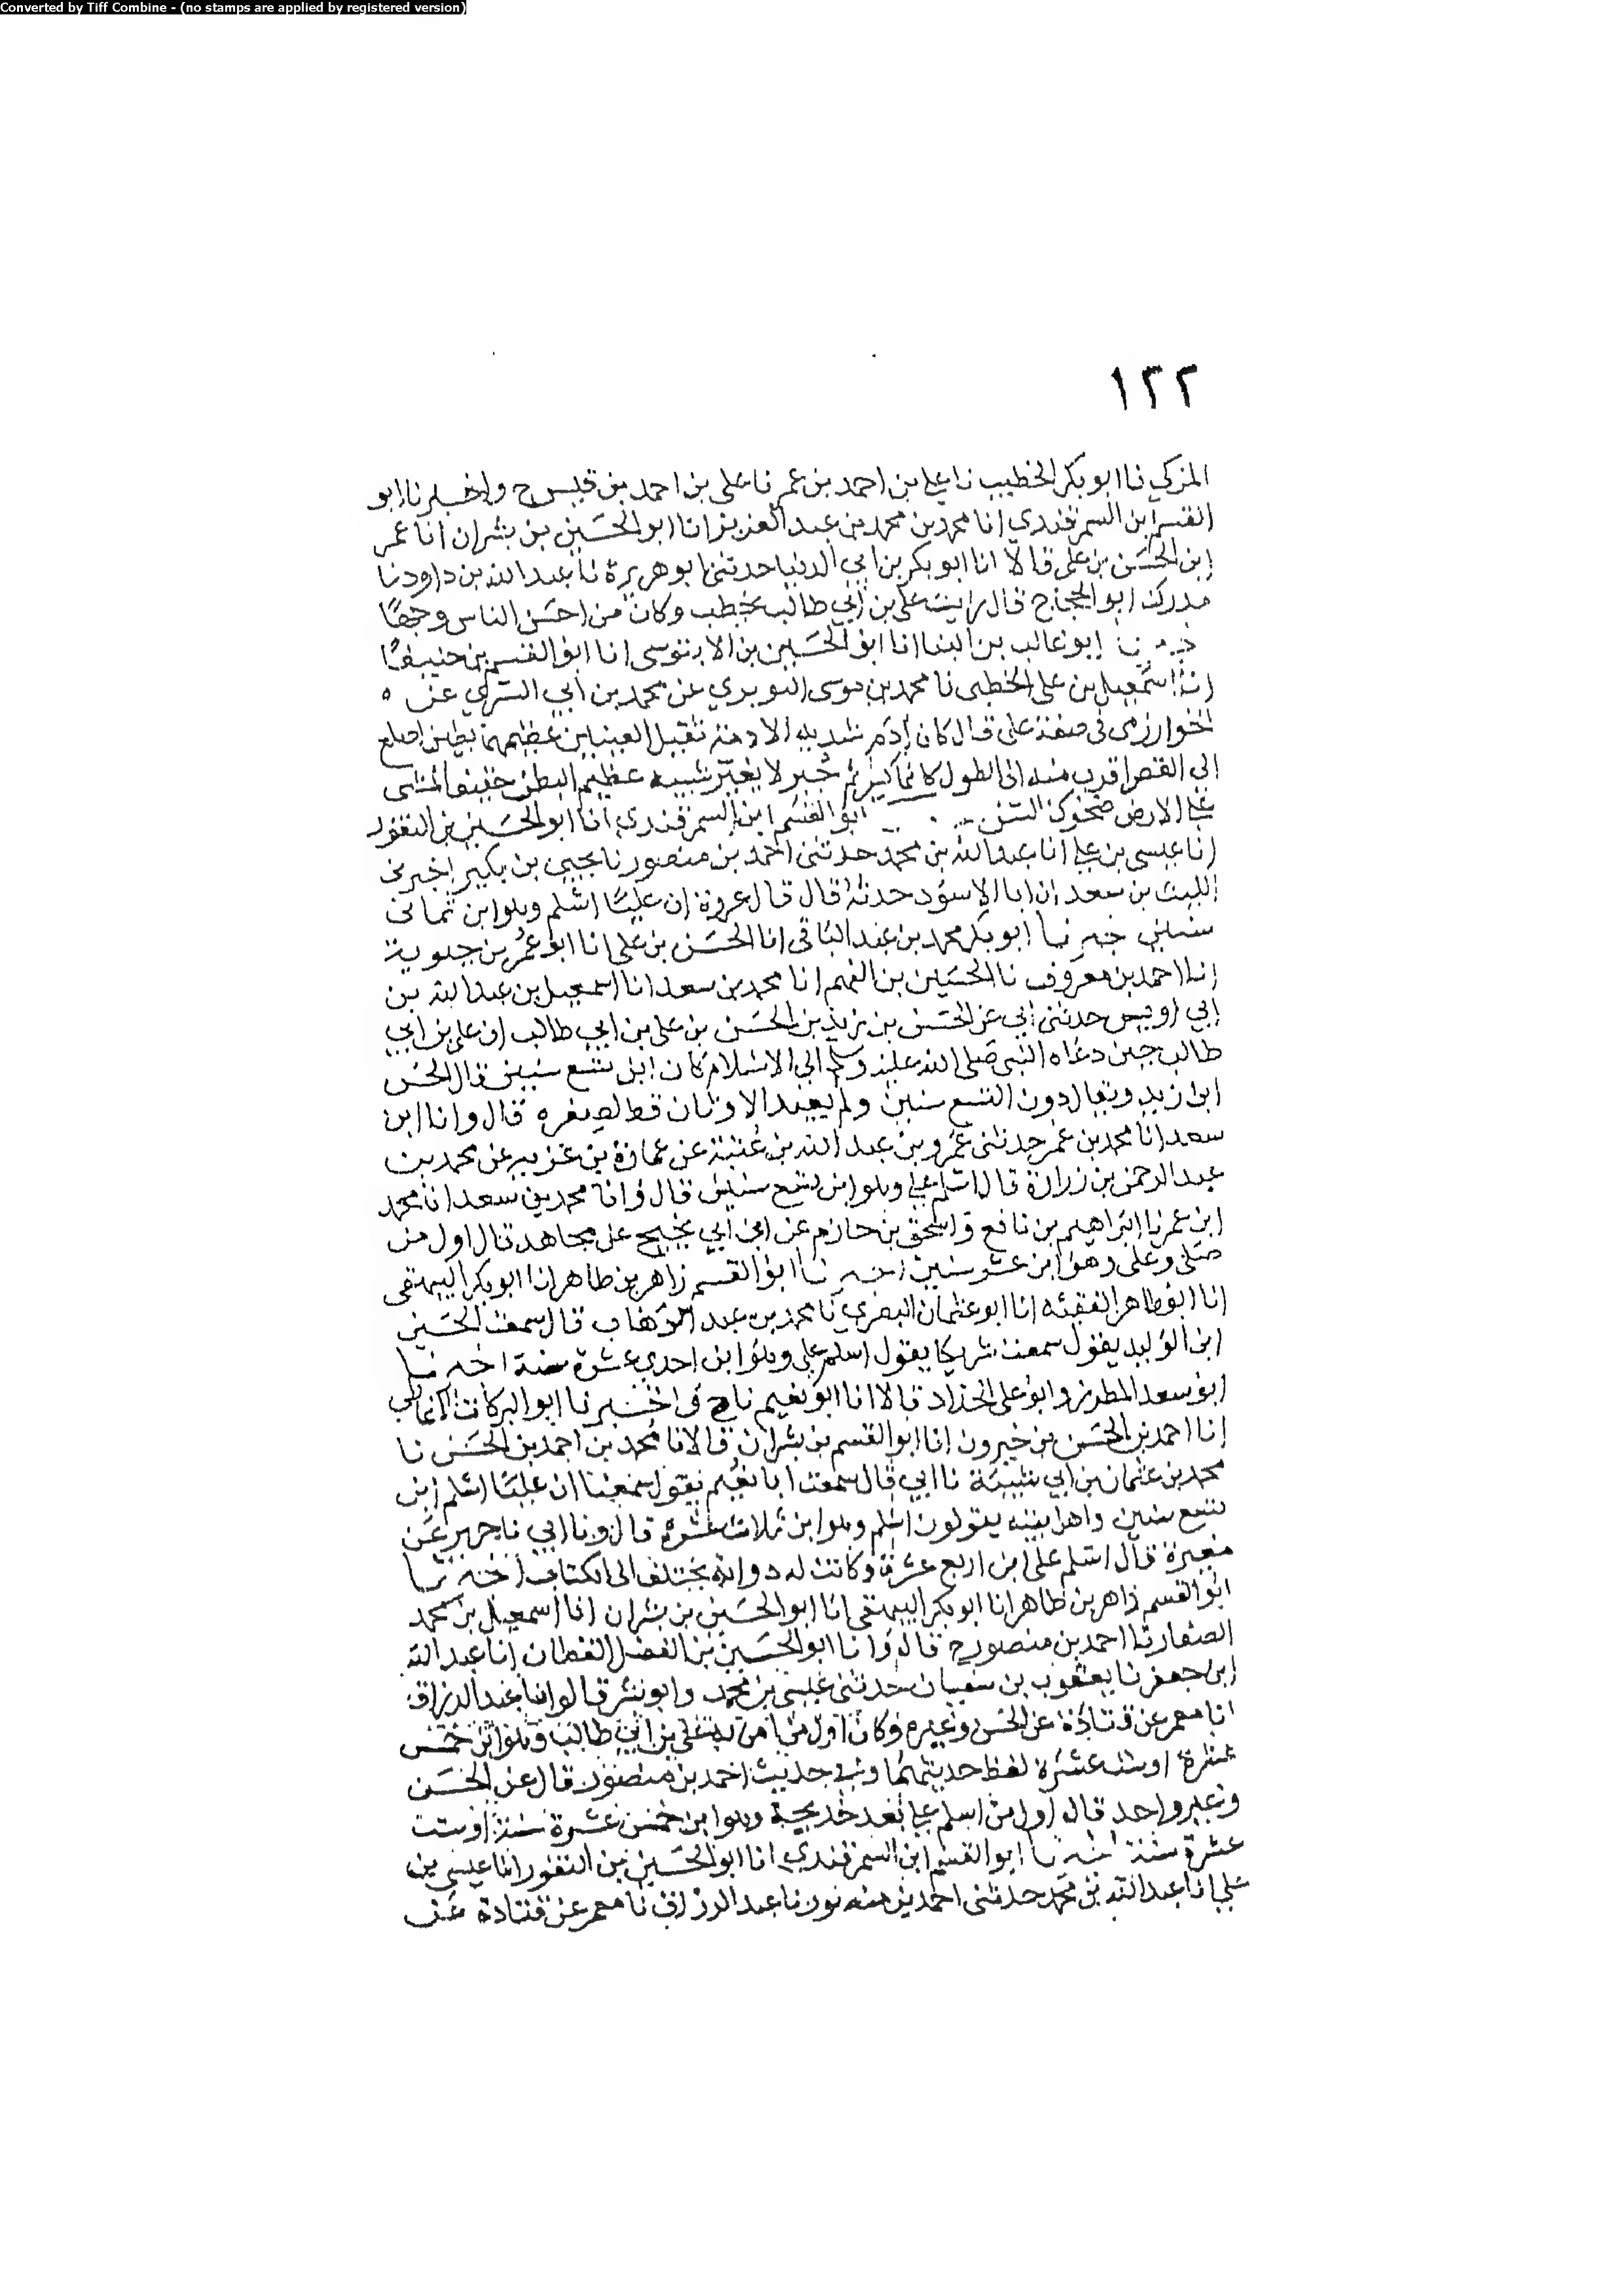 Converted by Tiff Combine - (no stamps are applied by registered version)
١٢٢
المزكي نا ابو بكر الخطيب نا علي بن احمد بن عمر نا على بن احمد بن قيس ح واخبرنا ابو
القسم ابن السمرقندي انا محمد بن محمد بن عبد العزيز انا ابو الحسين بن بشران انا عمر
ابن الحسن بن على قالا انا ابو بكر بن ابي الدنيا حدثنى ابو هريرة نا عبد الله بن داود نا
مدرك ابو الحجاج قال رايت على بن ابي طالب يخطب وكان من احسن الناس وجها
ابو غالب بن البنا انا ابو الحسين بن الابنوسى انا ابو القسم بن حنيقا
انا اسمعيل بن على الخطبى نا محمد بن موسى البربري عن محمد بن ابي السري عن
الخوارزمى فى صفة على قال كان ادم شديد الادمة ثقيل العينين عظيمهما بطين اصلع
الى القصر اقرب منه الى الطول كانما كسر ثم جبر لا يغير شيبه عظيم البطن خفيف المشى
على الارض ضحوك السن ابو القسم ابن السمرقندي انا ابو الحسين بن النقور
انا عيسى بن علي انا عبد الله بن محمد حدثنى احمد بن منصور نا يحيى بن بكير اخبرنى
الليث بن سعد ان ابا الاسود حدثه قال قال عروة ان عليا اسلم وهو ابن ثمانى
سنين اخبرنا ابو بكر محمد بن عبد الباقى انا الحسن بن على انا ابو عمر بن حيوية
انا احمد بن معروف نا الحسين بن الفهم انا محمد بن سعد انا اسمعيل بن عبد الله بن
ابي اويس حدثنى ابي عن الحسن بن زيد بن الحسن بن على بن ابي طالب ان على بن ابي
طالب حين دعاه النبى صلى الله عليه وسلم الى الاسلام كان ابن تسع سنين قال الحسن
ابن زيد ويقال دون التسع سنين ولم يعبد الاوثان قط لصغره قال وانا ابن
سعد انا محمد بن عمر حدثنى عمرو بن عبد الله بن عنبسة عن عمارة بن غزية عن محمد بن
عبد الرحمن بن زرارة قال اسلم علي وهو ابن تسع سنين قال وانا محمد بن سعد انا محمد
ابن عمر نا ابراهيم بن نافع واسحق بن حازم عن ابن ابي نجيح عن مجاهد قال اول من
صلى على وهو ابن عشر سنين اخبرنا ابو القسم زاهر بن طاهر انا ابو بكر البيهقى
انا ابو طاهر الفقيه انا ابو عثمان البصري نا محمد بن عبد الوهاب قال سمعت الحسين
ابن الوليد يقول سمعت شريكا يقول اسلم على وهو ابن احدى عشرة سنة اخبرنا
ابو سعد المطرز وابو على الحداد قالا انا ابو نعيم نا ح واخبرنا ابو البركات الانماطي
انا احمد بن الحسن بن خيرون انا ابو القسم بن بشران قالا نا محمد بن احمد بن الحسن نا
محمد بن عثمان بن ابي شيبة نا ابي قال سمعت ابا نعيم يقول سمعنا ان عليا اسلم ابن
تسع سنين واهل بيته يقولون اسلم وهو ابن ثلاث عشرة قال ونا ابي نا جرير عن
مغيرة قال اسلم على ابن اربع عشرة وكانت له ذوابة يختلف الى الكتاب اخبرنا
ابو القسم زاهر بن طاهر انا ابو بكر البيهقى انا ابو الحسين بن بشران انا اسمعيل بن محمد
الصفار نا احمد بن منصور ح قال وانا ابو الحسين بن الفضل القطان انا عبد الله
ابن جعفر نا يعقوب بن سفيان حدثنى عيسى بن محمد وابو بشر قالوا انا عبد الرزاق
انا معمر عن قتادة عن الحسن وغيره وكان اول من امن به على بن ابي طالب وهو ابن خمس
عشرة او ست عشرة لفظ حديثهما وفي حديث احمد بن منصور قال عن الحسن
وغير واحد قال اول من اسلم علي بعد خديجة وهو ابن خمس عشرة سنة او ست
عشرة سنة اخبرنا ابو القسم ابن السمرقندي انا ابو الحسين بن النقور انا عيسى بن
علي انا عبد الله بن محمد حدثنى احمد بن منصور نا عبد الرزاق نا معمر عن قتادة عن